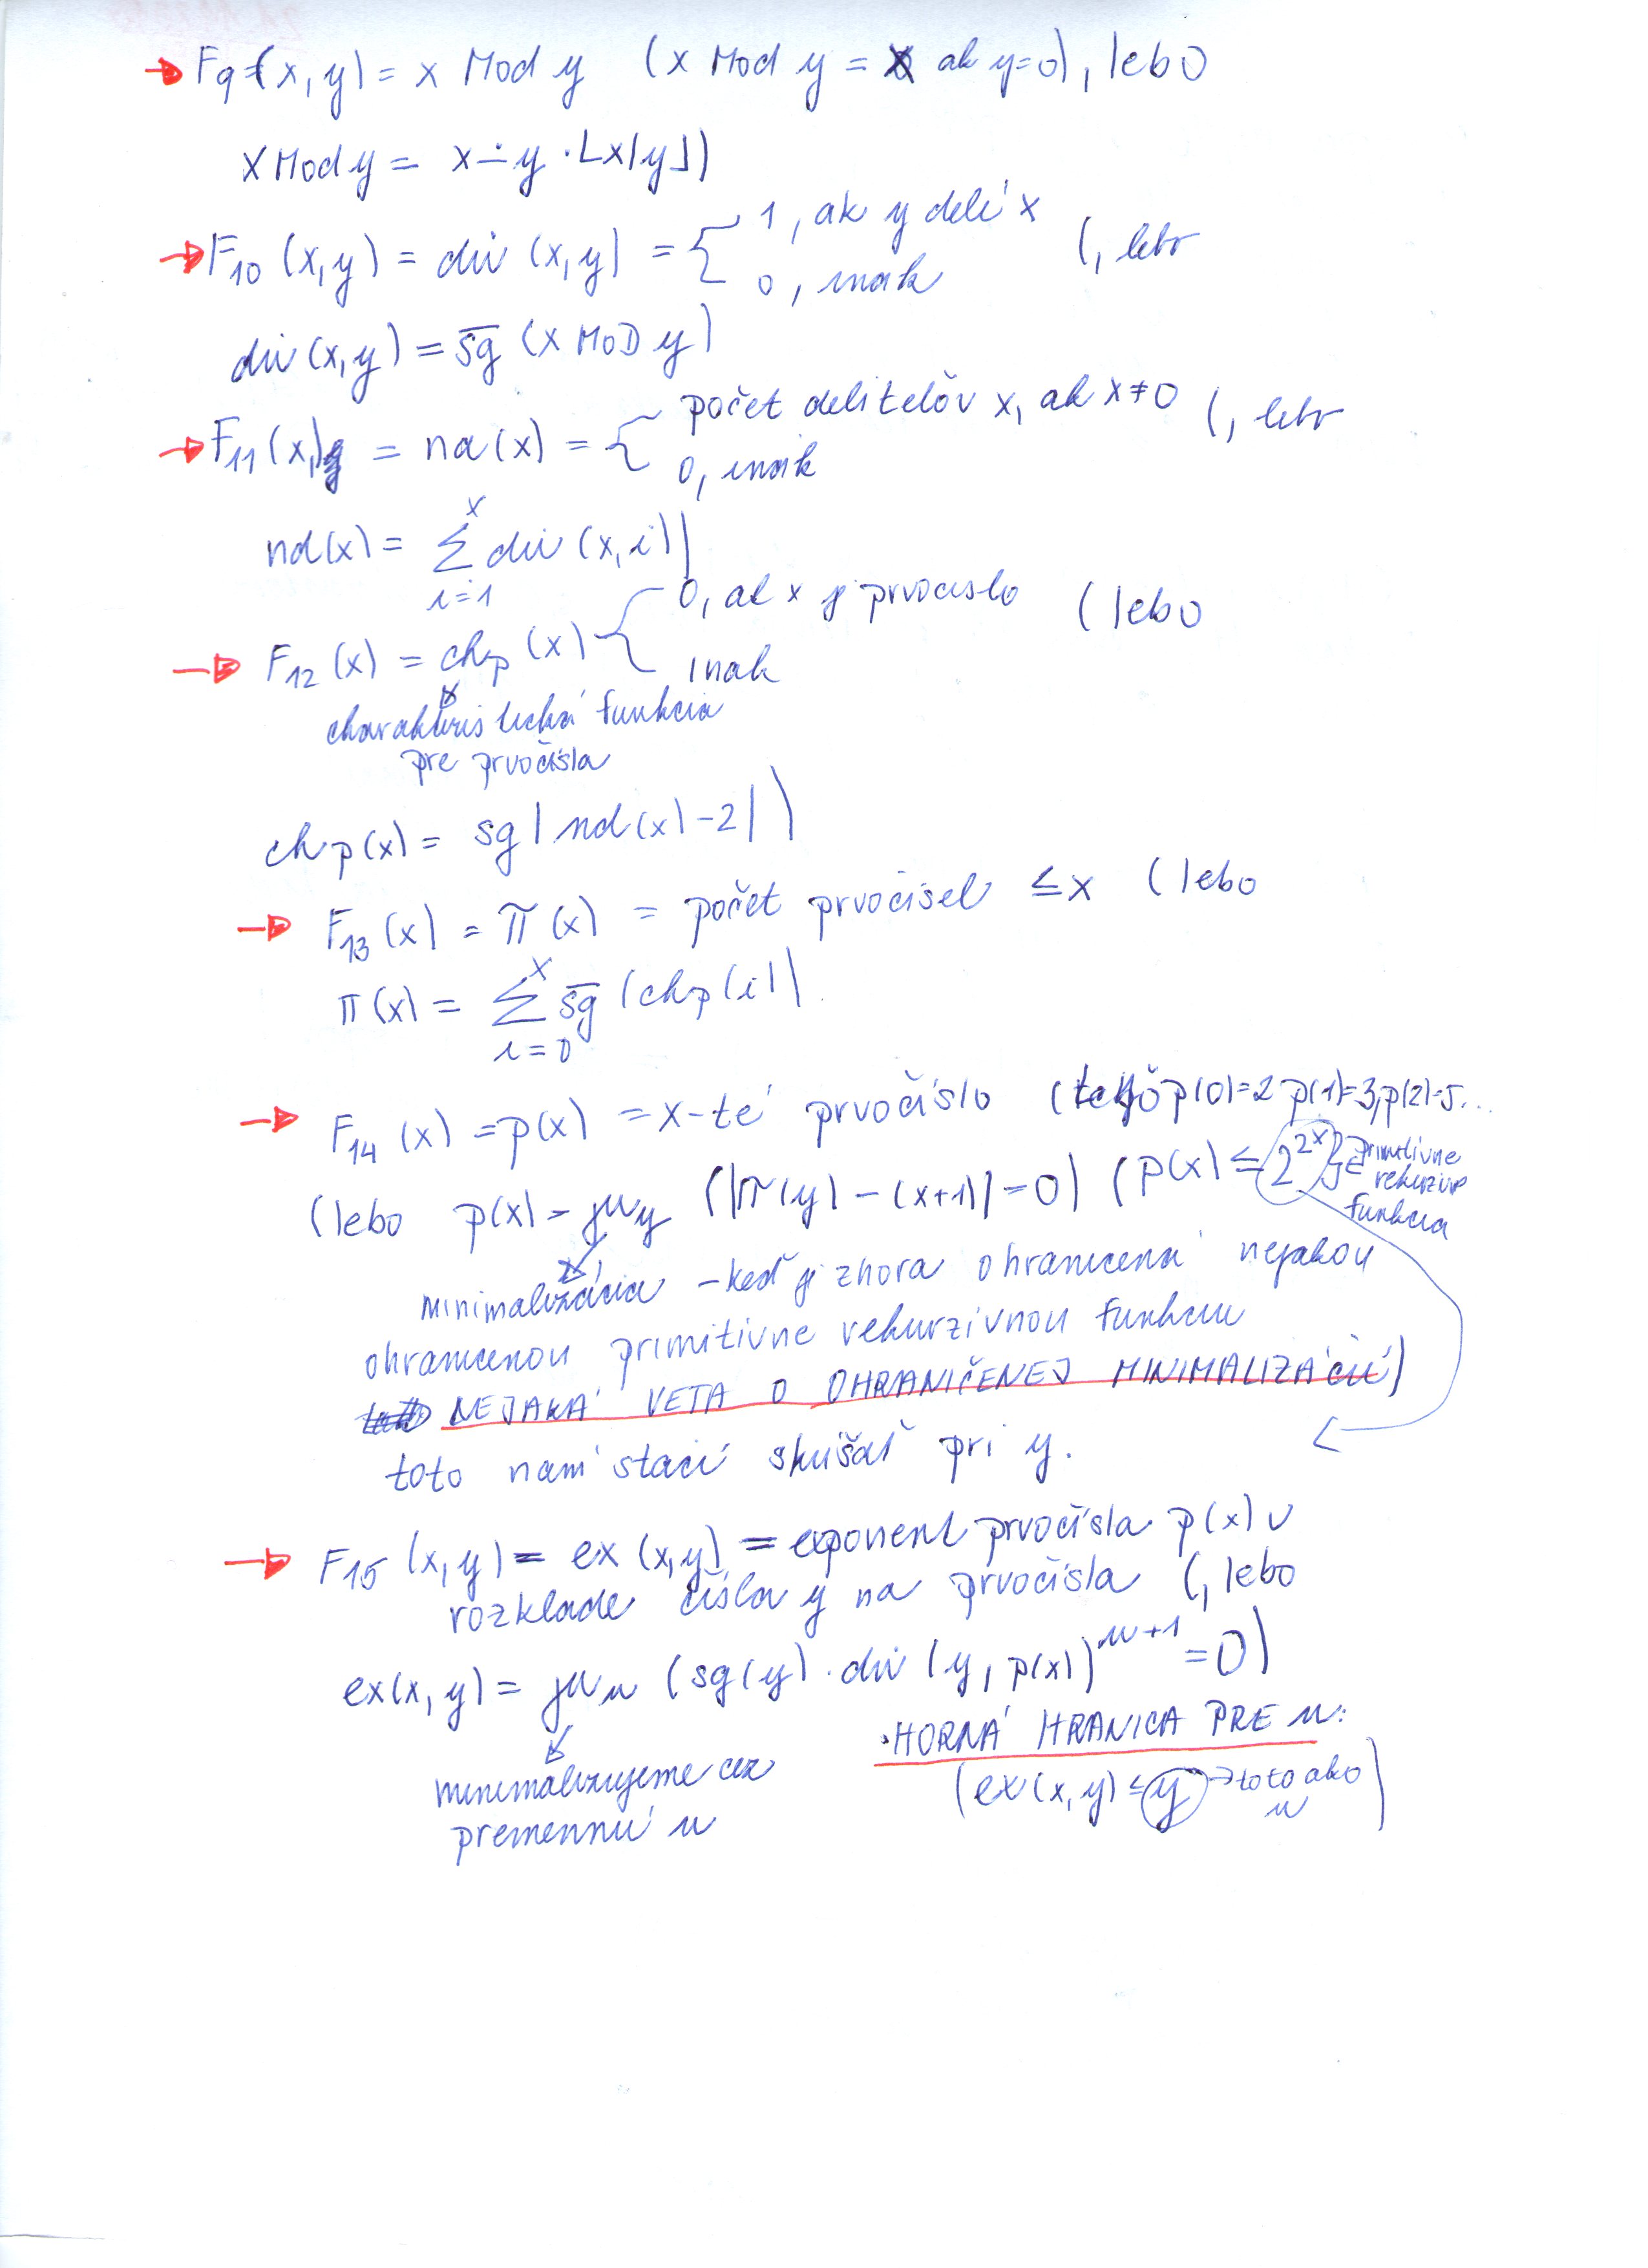 → F9 (x, y) = x Mod y (x Mod y = x ak y=0), lebo
x Mod y = x ∸ y · ⌊x/y⌋)
→ F10 (x,y) = div (x,y) = { 1, ak y delí x (, lebo
0, inak
div (x,y) = s̅g̅ (x MOD y)
→ F11 (x) = nd (x) = { počet deliteľov x, ak x≠0 (, lebo
0, inak
nd(x) = ∑_{i=1}^{x} div (x,i))
→ F12 (x) = chp (x) { 0, ak x je prvocislo (lebo
inak
charakteristická funkcia
pre prvočísla
chp(x) = sg | nd(x) - 2 | )
→ F13 (x) = π (x) = počet prvočísel ≤ x (lebo
π(x) = ∑_{i=0}^{x} s̅g̅ (chp (i))
→ F14 (x) = p(x) = x-té prvočíslo ( p(0)=2 p(1)=3, p(2)=5...
(lebo p(x) = μy (|π(y) - (x+1)| = 0) (p(x) ≤ 2^{2^x} } je primitívne
rekurzívne
funkcia
minimalizácia - keď je zhora ohranicená nejakou
ohranicenou primitívne rekurzívnou funkciu
NEJAKÁ VETA O OHRANIČENEJ MINIMALIZÁCIÍ)
toto nám stací skúšať pri y.
→ F15 (x, y) = ex (x,y) = exponent prvočísla p(x) v
rozklade čísla y na prvočísla (, lebo
ex(x, y) = μu (sg(y) · div (y, p(x))^{u+1} = 0)
· HORNÁ HRANICA PRE u:
minimalizujeme cez
premennú u
(ex(x, y) ≤ y → toto ako
u)